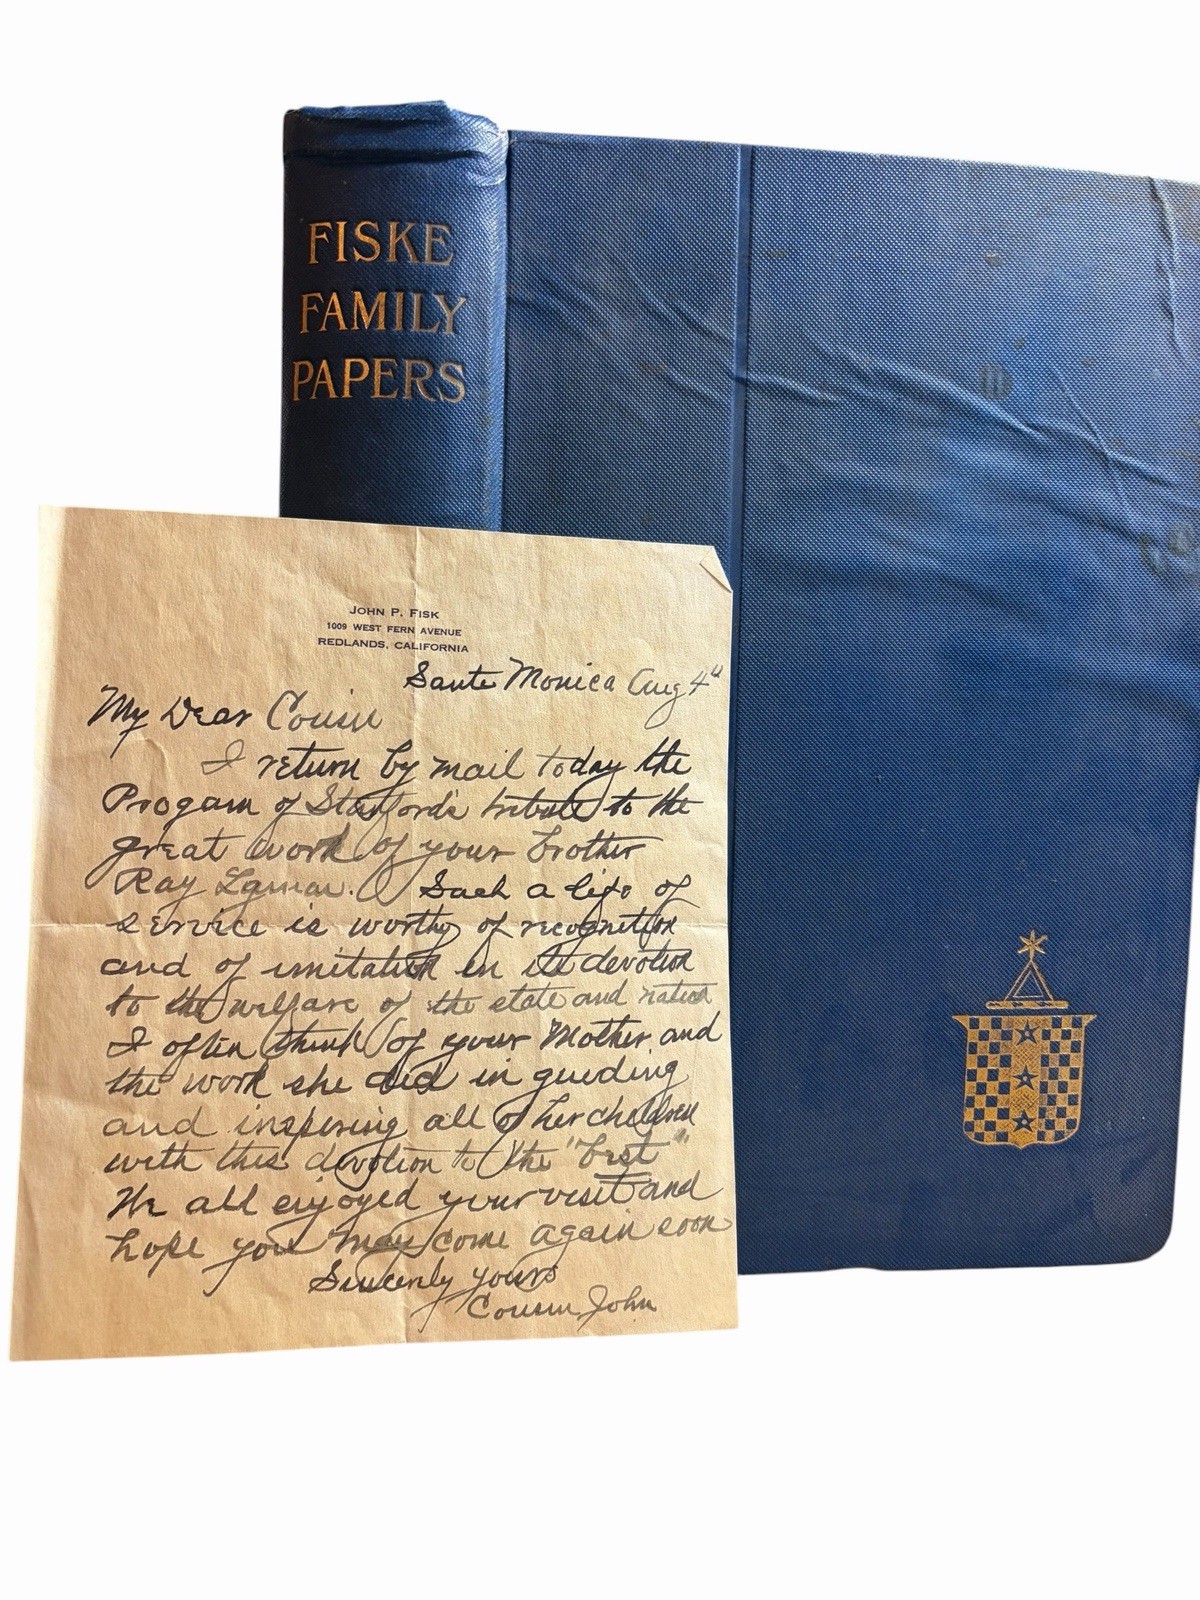 FISKE
FAMILY
PAPERS
JOHN P. FISK
1009 WEST FERN AVENUE
REDLANDS, CALIFORNIA
Santa Monica Aug 4th
My Dear Cousin
I return by mail today the
Progam of Stanford's tribute to the
great work of your brother
Ray Lyman. Such a life of
service is worthy of recognition
and of imitation in its devotion
to the welfare of the state and nation
I often think of your Mother and
the work she did in guiding
and inspiring all of her children
with this devotion to the "best"
We all enjoyed your visit and
hope you may come again soon
Sincerely yours
Cousin John